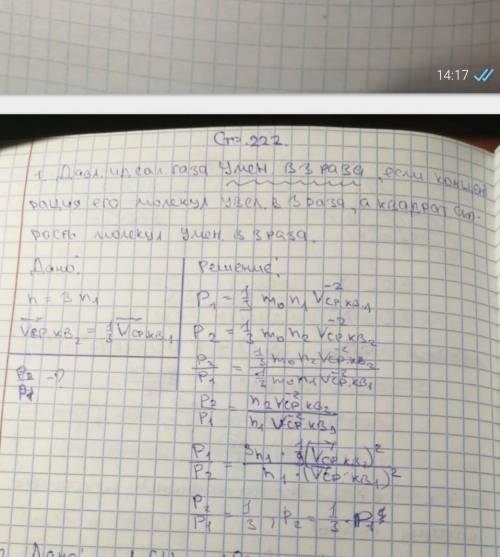 14:17
Стр. 222.
1. Давл. идеал. газа умен. в 3 раза, если концент
рация его молекул увел. в 3 раза, а квадрат ско-
рость молекул умен. в 3 раза.
Дано:
n = 3 n₁
V̅ср.кв₂ = 1/3 V̅ср.кв₁
P₂/P₁ - ?
Решение:
P₁ = 1/3 m₀ n₁ V̅²ср.кв₁
P₂ = 1/3 m₀ n₂ V̅²ср.кв₂
P₂/P₁ = (1/3 m₀ n₂ V̅²ср.кв₂)/(1/3 m₀ n₁ V̅²ср.кв₁)
P₂/P₁ = (n₂ V̅²ср.кв₂)/(n₁ V̅²ср.кв₁)
P₁/P₂ = (3n₁ · 1/9 (V̅ср.кв₁)²)/(n₁ · (V̅ср.кв₁)²)
P₂/P₁ = 1/3, P₂ = 1/3 · P₁
Дано: